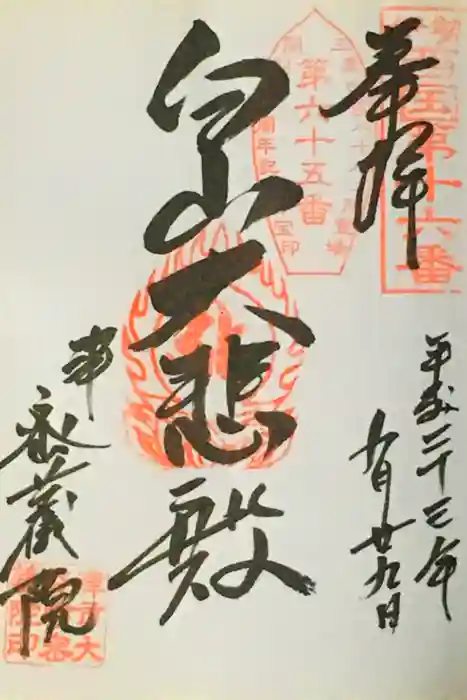 奉拝
西国第十六番
第六十五番
平成二十三年
九月廿九日
白山大悲殿
永蔵院